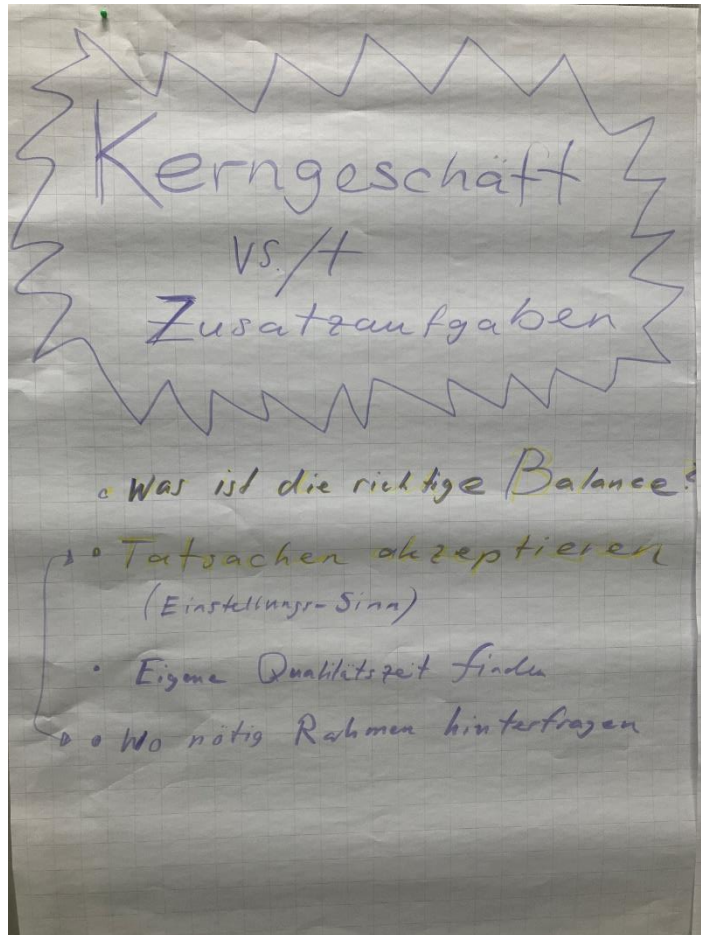 Kerngeschäft
vs./+
Zusatzaufgaben
• Was ist die richtige Balance?
• Tatsachen akzeptieren
(Einstellungs-Sinn)
• Eigene Qualitätszeit finden
• Wo nötig Rahmen hinterfragen